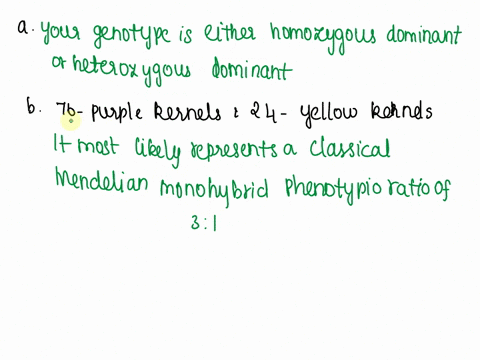 a. Your genotype is either homozygous dominant
or heterozygous dominant
b. 76- purple kernels & 24- yellow kernels
It most likely represents a classical
Mendelian monohybrid phenotypic ratio of
3:1